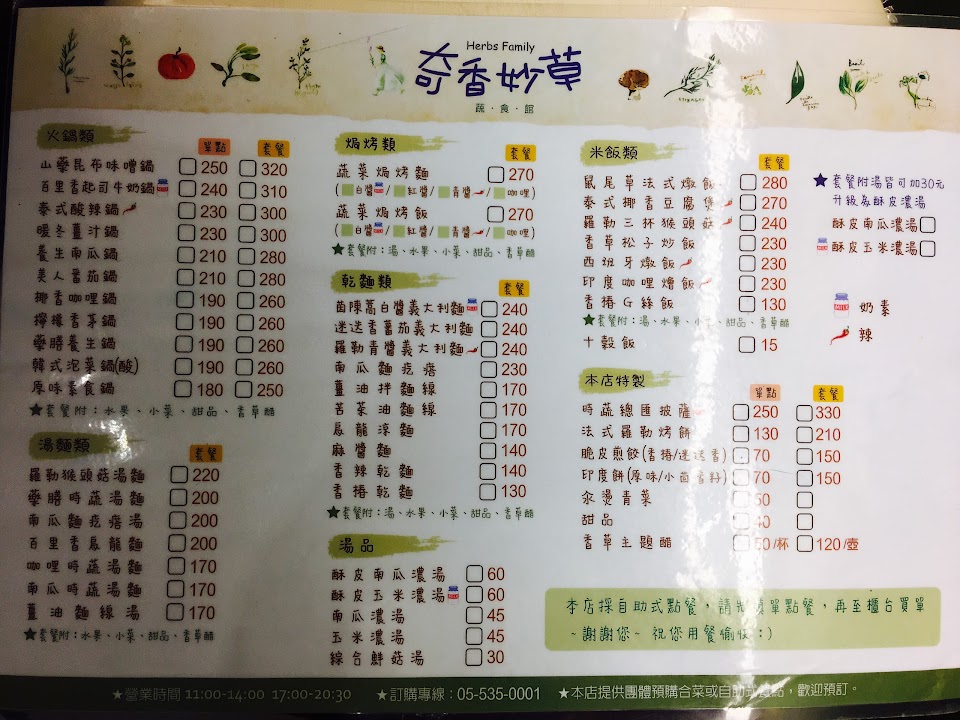 Herbs Family
奇香妙草
蔬・食・館
火鍋類 單點 套餐
山藥昆布味噌鍋 250 320
百里香起司牛奶鍋 240 310
泰式酸辣鍋 230 300
暖冬薑汁鍋 230 300
養生南瓜鍋 210 280
美人番茄鍋 210 280
椰香咖哩鍋 190 260
檸檬香茅鍋 190 260
藥膳養生鍋 190 260
韓式泡菜鍋(酸) 190 260
原味素食鍋 180 250
★套餐附：水果、小菜、甜品、香草醋
湯麵類 套餐
羅勒猴頭菇湯麵 220
藥膳時蔬湯麵 200
南瓜麵疙瘩湯 200
百里香長龍麵 200
咖哩時蔬湯麵 170
南瓜時蔬湯麵 170
薑油麵線湯 170
★套餐附：水果、小菜、甜品、香草醋
焗烤類 套餐
蔬菜焗烤麵 270
(白醬/紅醬/青醬/咖哩)
蔬菜焗烤飯 270
(白醬/紅醬/青醬/咖哩)
★套餐附：湯、水果、小菜、甜品、香草醋
乾麵類 套餐
茵陳蒿白醬義大利麵 240
迷迭香蕃茄義大利麵 240
羅勒青醬義大利麵 240
南瓜麵疙瘩 230
薑油拌麵線 170
苦菜油麵線 170
長龍涼麵 170
麻醬麵 140
香辣乾麵 140
香椿乾麵 130
★套餐附：湯、水果、小菜、甜品、香草醋
湯品
酥皮南瓜濃湯 60
酥皮玉米濃湯 60
南瓜濃湯 45
玉米濃湯 45
綜合鮮菇湯 30
米飯類 套餐
鼠尾草法式燉飯 280
泰式椰香豆腐煲 270
羅勒三杯猴頭菇 240
香草松子炒飯 230
西班牙燉飯 230
印度咖哩燴飯 230
香椿G絲飯 130
★套餐附：湯、水果、小菜、甜品、香草醋
十穀飯 15
本店特製 單點 套餐
時蔬總匯披薩 250 330
法式羅勒烤餅 130 210
脆皮煎餃(香椿/迷迭香) 70 150
印度餅(原味/小茴香籽) 70 150
汆燙青菜 50
甜品 40
香草主題醋 50/杯 120/壺
★套餐附湯皆可加30元
升級為酥皮濃湯
酥皮南瓜濃湯
酥皮玉米濃湯
MILK 奶素
辣
本店採自助式點餐，請先填單點餐，再至櫃台買單
~謝謝您~ 祝您用餐愉快：)
★營業時間 11:00-14:00 17:00-20:30 ★訂購專線：05-535-0001 ★本店提供團體預購合菜或自助式餐點，歡迎預訂。